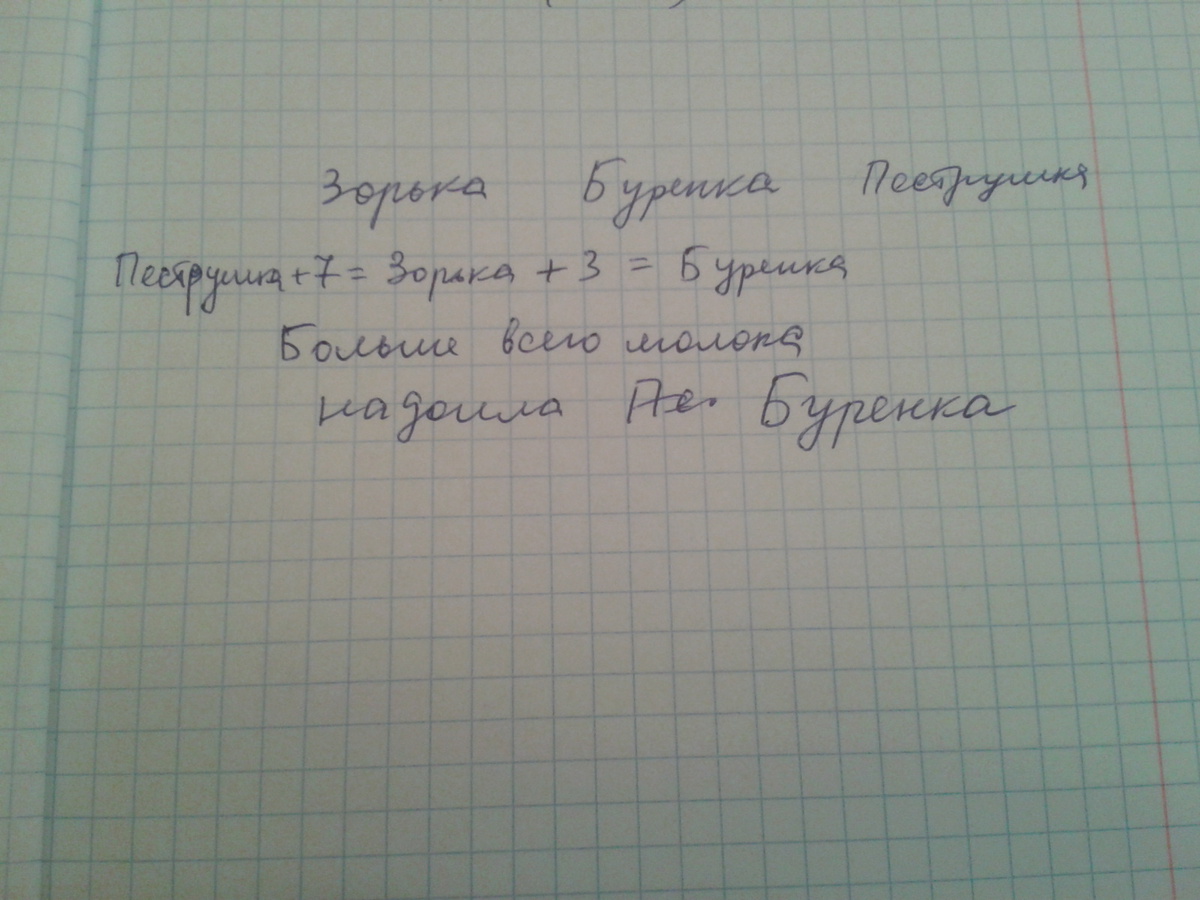 Зорька Буренка Пеструшка
Пеструшка + 7 = Зорька + 3 = Буренка
Больше всего молока
надоила Буренка